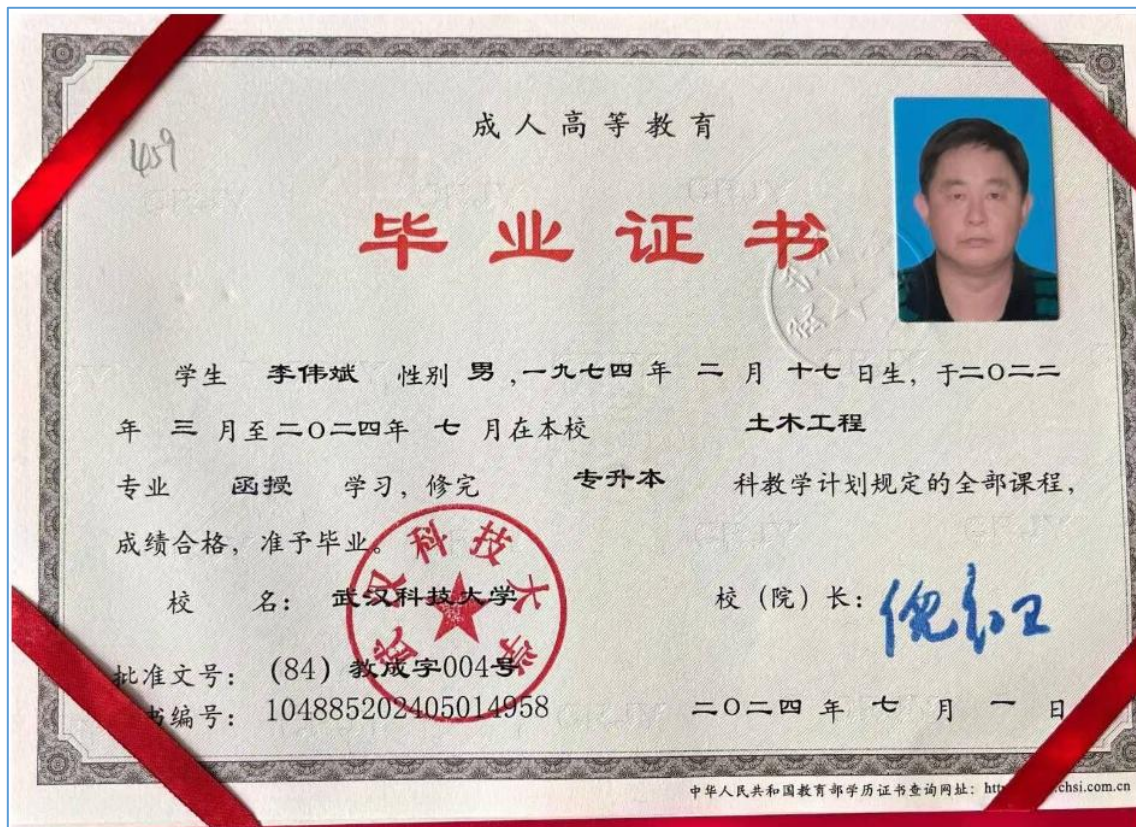 成人高等教育
459
毕业证书
学生 李伟斌 性别 男，一九七四 年 二 月 十七 日生，于二〇二二
年 三 月至二〇二四年 七 月在本校 土木工程
专业 函授 学习，修完 专升本 科教学计划规定的全部课程，
成绩合格，准予毕业。
校 名： 武汉科技大学
校（院）长：倪红卫
武汉科技大学
批准文号： (84) 教成字004号
书编号： 104885202405014958
二〇二四 年 七 月 一 日
中华人民共和国教育部学历证书查询网址：htt chsi.com.cn